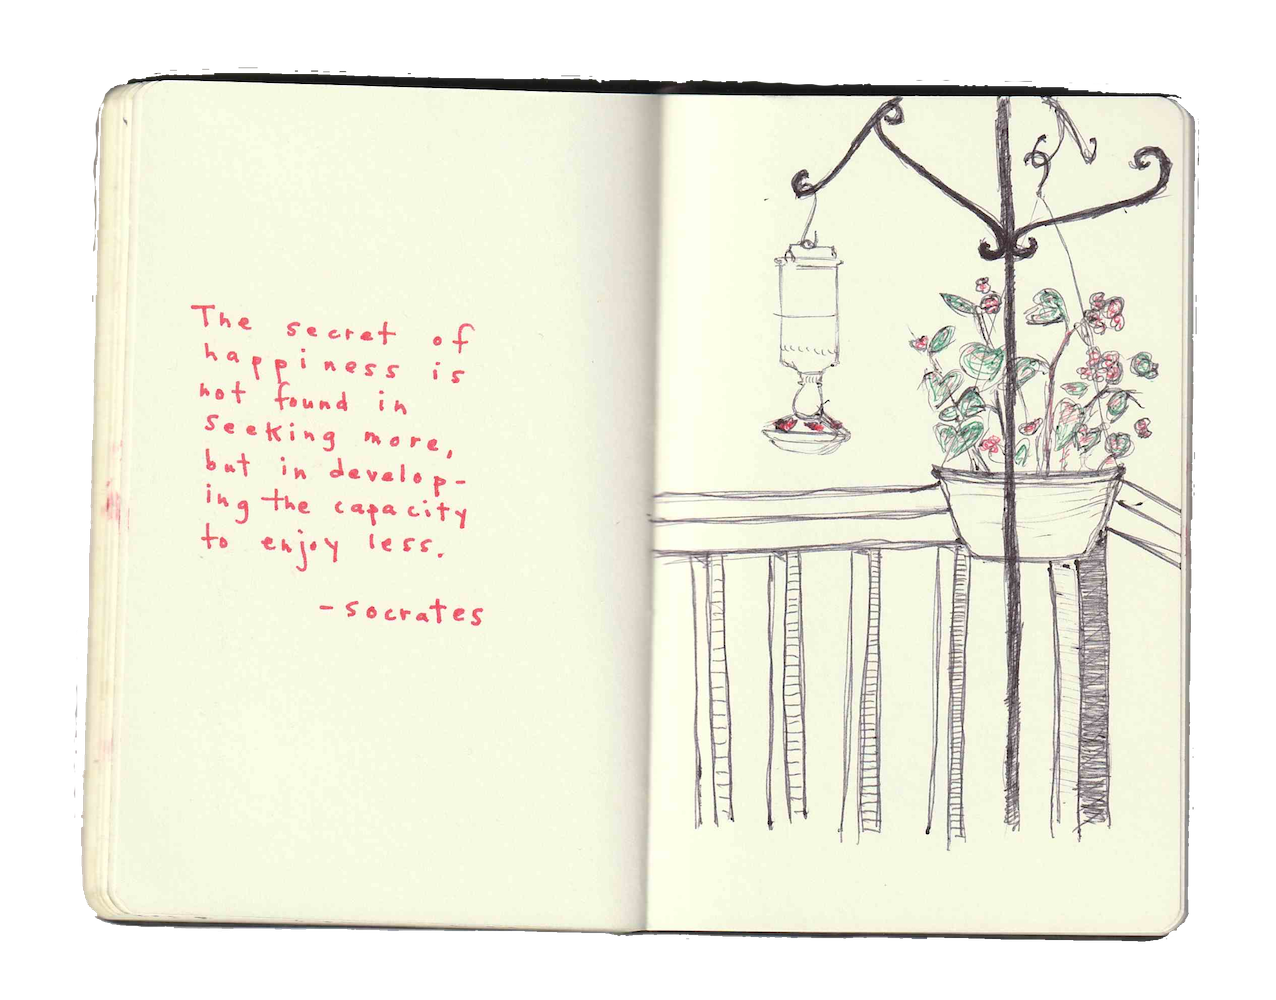 The secret of
happiness is
not found in
seeking more,
but in develop-
ing the capacity
to enjoy less.
- socrates